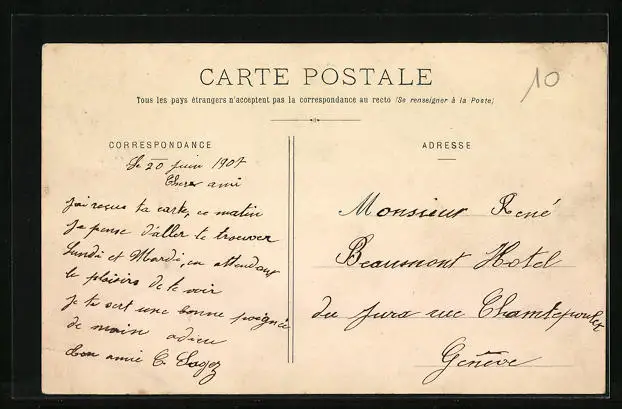 10
CARTE POSTALE
Tous les pays étrangers n'acceptent pas la correspondance au recto (Se renseigner à la Poste)
CORRESPONDANCE
Le 20 juin 1907
Cher ami
J'ai reçus ta carte, ce matin
Je pense d'aller te trouver
Lundi et Mardi, en attendant
le plaisirs de te voir
je te sert une bonne poignée
de main adieu
ton amie C.
ADRESSE
Monsieur René
Beaumont Hotel
du Jura rue Chantepoulet
Genève